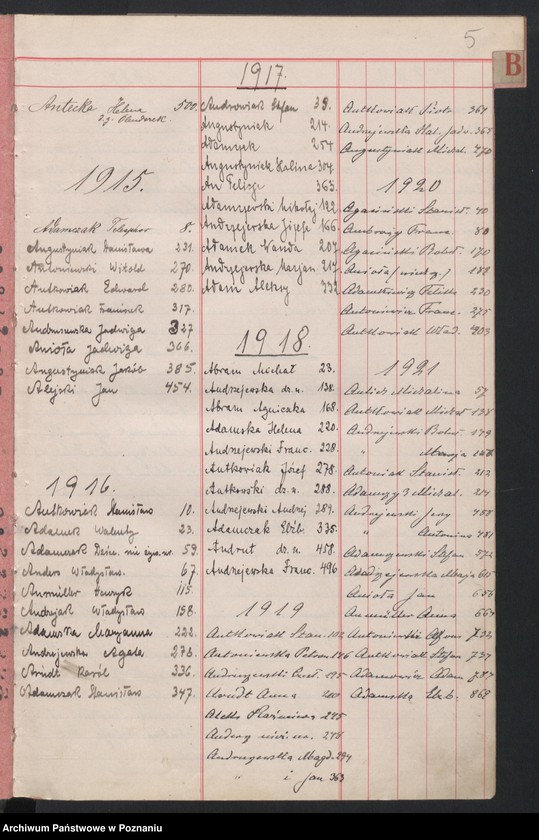 5
B
Antecka Helena 500.
1915.
Adamczak Telesfor 8.
Augustyniak Stanisława 231.
Antoniewski Witold 270.
Antkowiak Edward 280.
Antkowiak Franciszek 317.
Andruszewska Jadwiga 327
Anioła Jadwiga 366.
Augustyniak Jakób 385.
Alejski Jan 454.
1916.
Antkowiak Stanisław 10.
Adamek Walenty 23.
Adamczak 59.
Anders Władysław. 67.
Anmüller Henryk 115.
Andrzejak Władysław 158.
Adamska Maryanna 222.
Andrzejewska Agata 273.
Arndt Karól 336.
Adamczak Stanisław 347.
1917.
Androwiak Stefan 39.
Augustyniak 214.
Adamczyk 254
Augustyniak Halina 304.
An Felicje 363.
Adamszewski Mikołaj 122
Andrzejewska Józefa 166.
Adamek Wanda 207
Andrzejewska Marjan 217
Adam Aleksy 332
1918.
Abram Michał 23.
Andrzejewska dz. n. 138.
Abram Agnieszka 168.
Adamska Helena 220.
Andrzejewski Franc. 228.
Antkowiak Józef 278.
Antkowski dz. n. 288.
Andrzejewski Andrzej 289.
Adamczak Elżb. 335.
Androt dz. n. 458.
Andrzejewska Franc. 496
1919
Antkowiak Szan. 102.
Antoniewska Pelon. 146
Andrzejewski 195
Arndt Anna 210
Kazimierz 245
Anders 278
Andrzejewska Magd. 294
" i Jan 363
Antkowiak Piotr 361
Andrzejewska Kat. Jadw. 365
Augustyniak Michał. 470
1920
Agaciński Stanisł. 40
Ambroży Franc. 80
Agaciński Bolesł. 170
Anioła 188
Adamkiewicz Feliks 230
Antoniewicz Franc. 275
Antkowiak Wład. 403
1921
Antes Michalina 57
Antkowiak Michał 138
Andrzejewski Bolesł. 179
" Maryja
Antoniak Stanisł. 212
Adamczyk Michał. 214
Andrzejewski Jerzy 455
" Antonina 481
Adamczewski Stefan 572
Andrzejewska Marja 605
Anioła Jan 656
Anmüller Anna 667
Antoniewski Alfons 732
Antkowiak Stefan 737
Adamowicz Adam 787
Adamska Elżb. 868
Archiwum Państwowe w Poznaniu